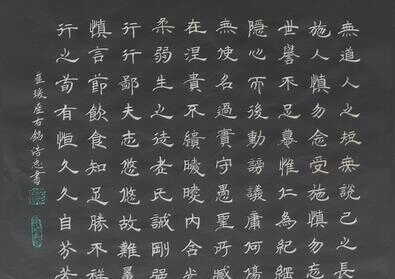 無道人之短無說己之長
施人慎勿念受施慎勿忘
世譽不足慕惟仁為紀綱
隱心而後動謗議庸何傷
無使名過實守愚聖所臧
在涅貴不緇曖曖內含光
柔弱生之徒老氏誡剛強
行行鄙夫志悠悠故難量
慎言節飲食知足勝不祥
行之苟有恒久久自芬芳
崔瑗座右銘 書